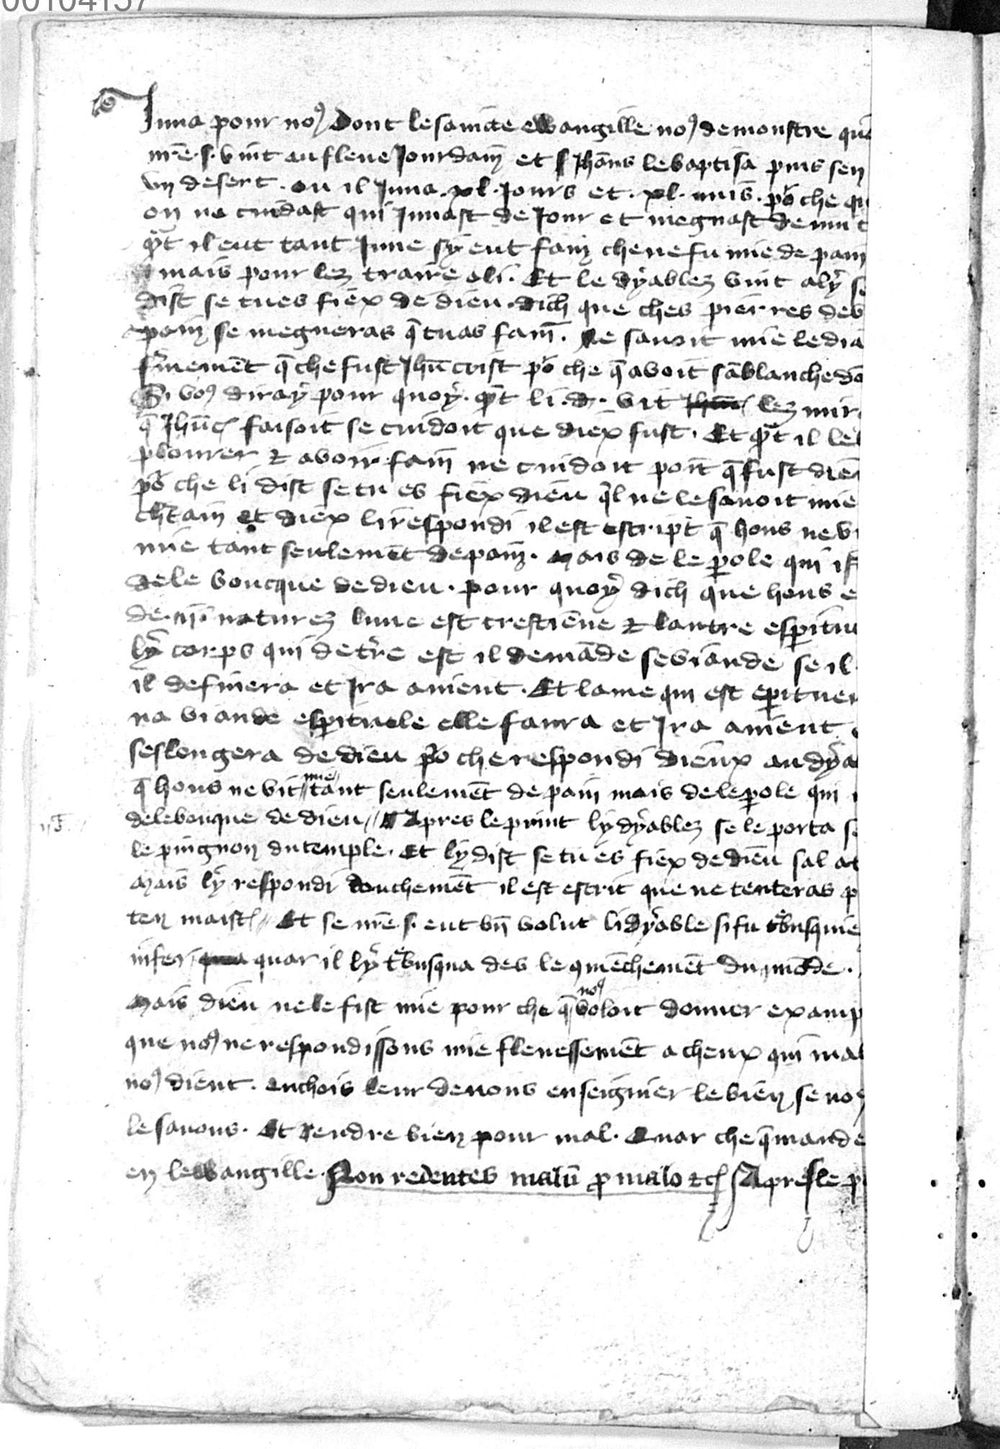 00104137
Juna pour no9 Dont le saincte ewangille no9 demonstre que
nr̄e .s. vint au fleue Jourdaiṅ et s Jhans le baptisa puis sen
vn desert . ou il Juna .xl. Jours et .xl. nuis . po che qu
on ne cuidast qui Junast de Jour et megnast de nuit
qn̄t il eut tant June sy eut faim che ne fu mie de pain
mais pour lez traire a li . Et le dyablez vint a ly se
dist se tu es fiex de dieu . dich que ches pierres des
pain se megneras q̄ tu as fam̄ . Ne sauoit mie le dia
fr̄memēt q̄ che fust Jhūcrist po che q̄ auoit sāblanche do
Si vo9 diray pour quoy . qn̄t li .d. vit lez mir
q̄ Jhūc faisoit se cuidoit que diex fust . Et qn̄t il le
plourer & auoir fam̄ ne cuidoit point q̄ fust dieu
po che li dist se tu es fiex dieu q̄l ne le sauoit mie
chtain et diex li respondi il est escript q̄ hons ne vi
mie tant seulemēt de pain . Mais de le parole qui is
de le boucque de dieu . pour quoy dich que hons e
de .ij. naturez lune est crestiēne & lautre esperitu
ly corps qui de tr̄e est il demāde se viande se il
il definera et Jra a nient . Et lame qui est esperituer
na viande esperituele elle faura et Jra a nient
seslongera de dieu po che respondi dieux au dya
q̄ hons ne vit mie tant seulemēt de pain mais de le parole qui
de le bouque de dieu // Apres le print ly dyablez se le porta s
le pingnon du temple . Et ly dist se tu es fiex de dieu sal at
Mais ly respondi douchemēt il est escrit que ne tenteras p
ten maist // Et se nr̄e .s. eut bn̄ volut li dyable si fu tbusquie
infer quar il ly tbusqua des le qmēchemēt du mōde .
Mais dieu ne le fist mie pour che q̄ no9 voloit donner examp
que no9 ne respondissons mie flenessemēt a cheux qui mal
no9 dient . anchois leur deuons enseignier le bien se no9
le sauons . Et rendre bien pour mal . Quar che q̄ mande
en lewangille . Non redentes malū p malo &c Apres le p